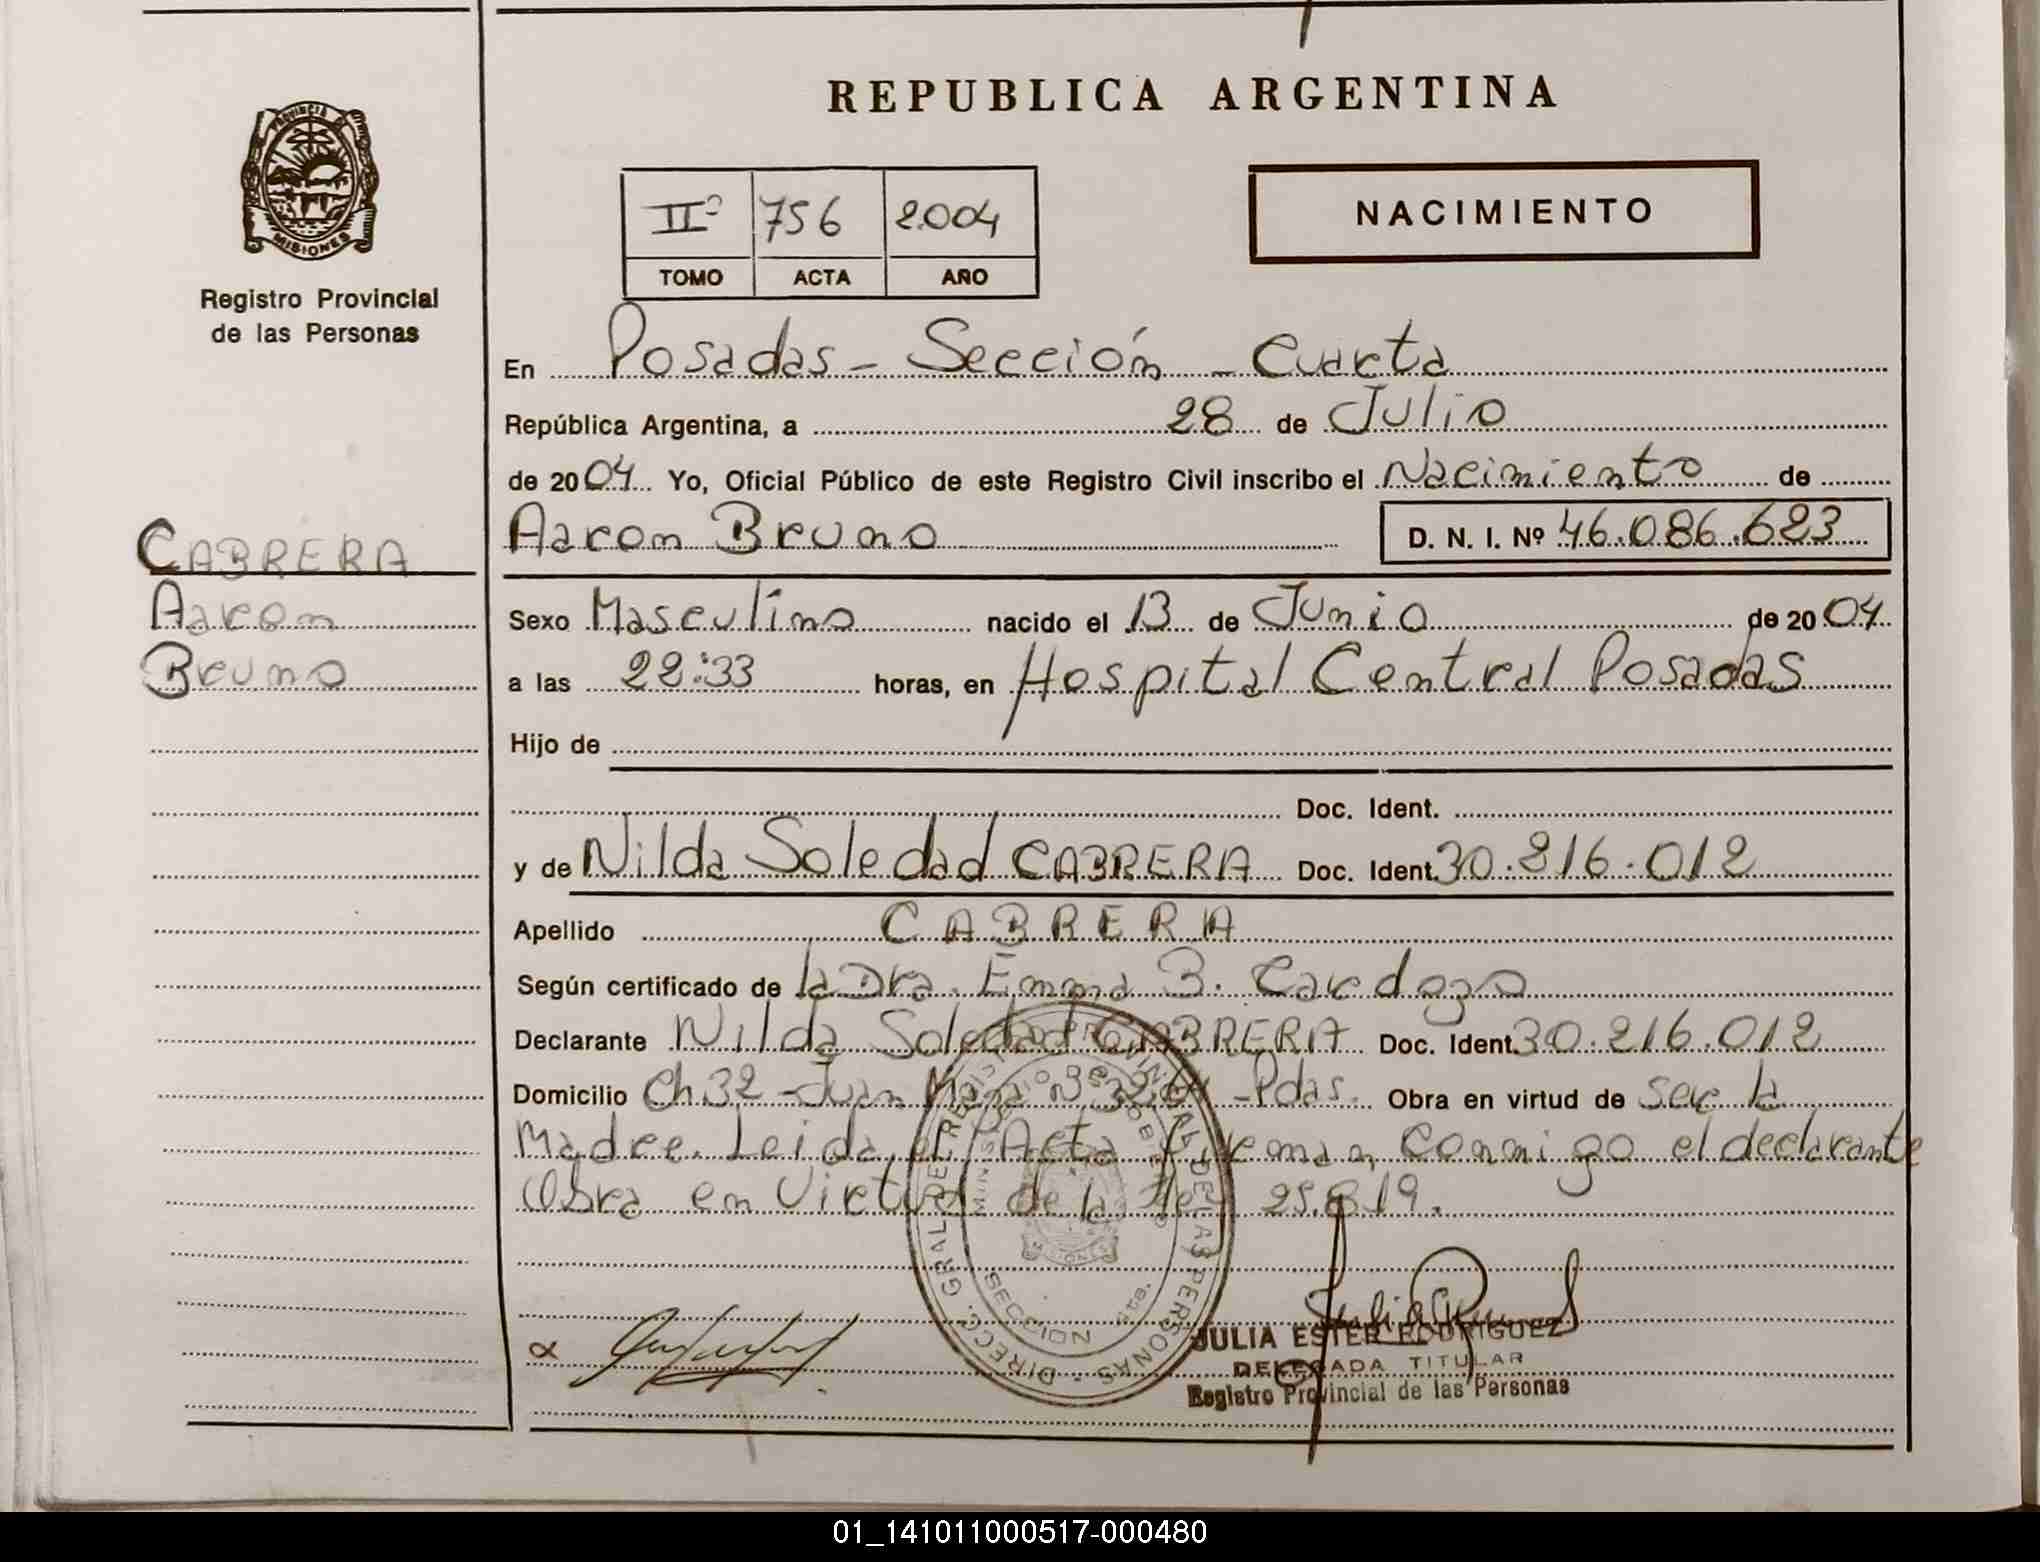 REPUBLICA ARGENTINA
PROVINCIA DE
MISIONES
Registro Provincial
de las Personas
IIº 756 2004
TOMO ACTA AÑO
NACIMIENTO
En Posadas - Sección - Cuarta
República Argentina, a 28 de Julio
de 2004 Yo, Oficial Público de este Registro Civil inscribo el Nacimiento de
Aaron Bruno D. N. I. Nº 46.086.623
CABRERA
Aaron
Bruno
Sexo Masculino nacido el 13 de Junio de 2004
a las 22:33 horas, en Hospital Central Posadas
Hijo de
Doc. Ident.
y de Nilda Soledad CABRERA Doc. Ident. 30.216.012
Apellido CABRERA
Según certificado de la Dra. Emma B. Cardozo
Declarante Nilda Soledad CABRERA Doc. Ident. 30.216.012
Domicilio Ch.32 - Juan - Pdas. Obra en virtud de ser la
Madre. Leida el Acta firman conmigo el declarante
Obra en Virtud de la ley 25.819.
DIRECC. GRAL. DE REGISTRO PROVINCIAL DE LAS PERSONAS
SECCION 4ta.
MISIONES
JULIA ESTER RODRIGUEZ
DELEGADA TITULAR
Registro Provincial de las Personas
01_141011000517-000480